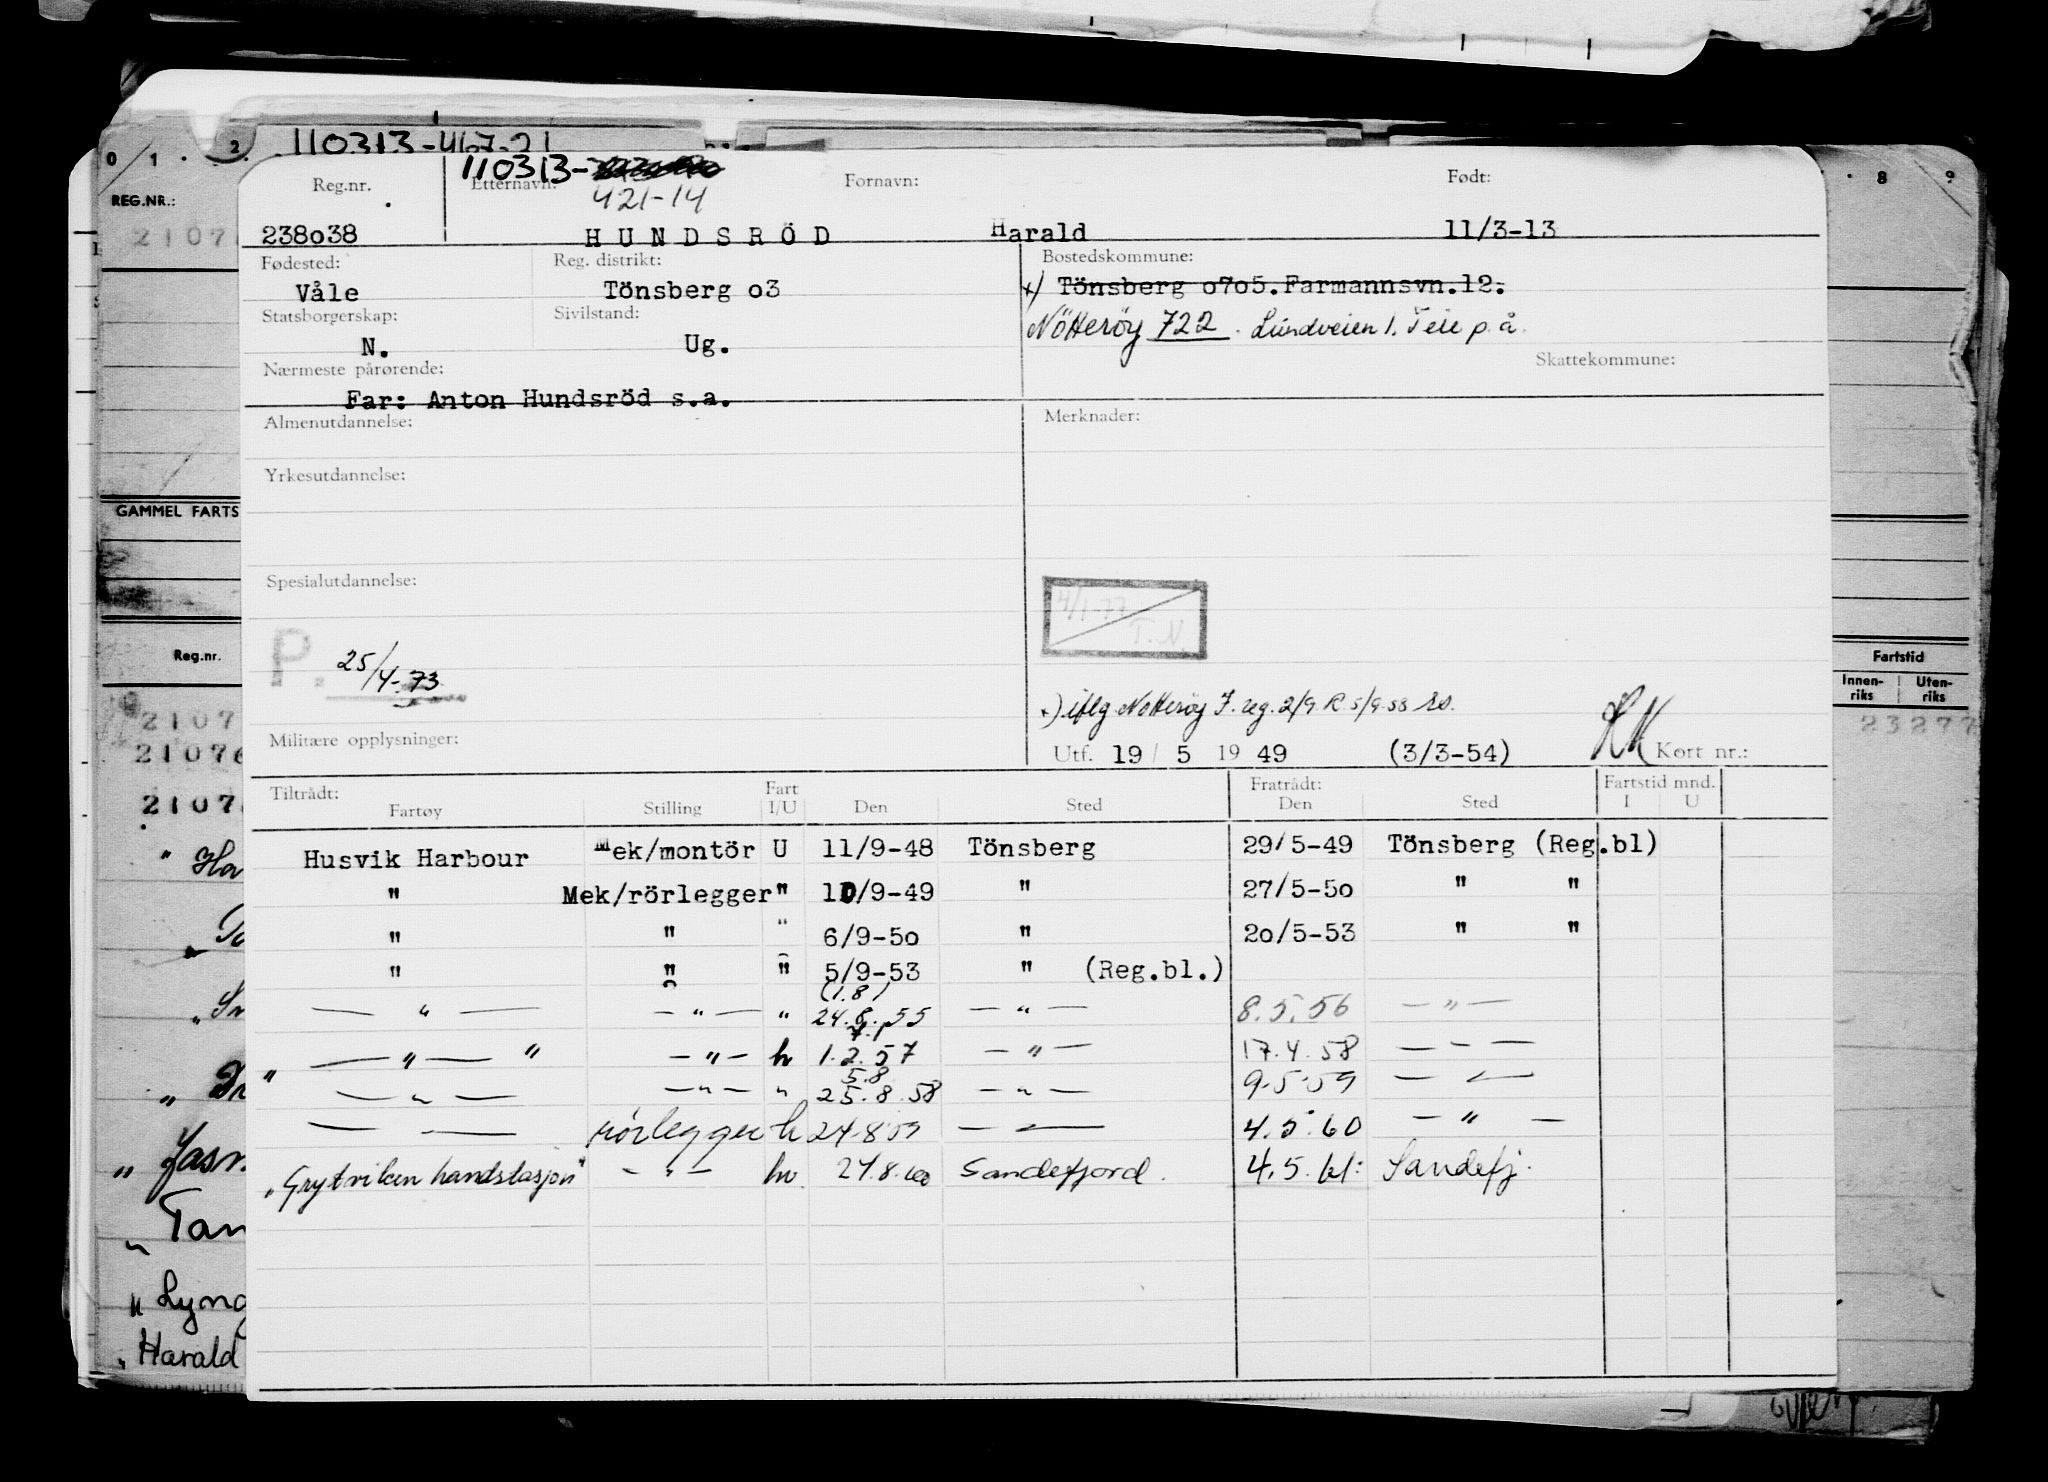 110313-467-21
0 1 . . 2
8 9
REG.NR.:
2107
GAMMEL FARTS
Reg.nr.
2107
21076
2107
" Ha
" Jasm
" Tam
" Lyng
" Harald
Fartstid
Innen-riks Uten-riks
23277
110313-
421-14
Reg.nr. Etternavn: Fornavn: Født:
238o38 HUNDSRÖD Harald 11/3-13
Fødested: Reg. distrikt: Bostedskommune:
Våle Tönsberg o3 x) Tönsberg o7o5. Farmannsvn.12.
Statsborgerskap: Sivilstand: Nötterøy 722. Lundveien 1. Teie p.å.
N. Ug.
Nærmeste pårørende: Skattekommune:
Far: Anton Hundsröd s.a.
Almenutdannelse: Merknader:
Yrkesutdannelse:
Spesialutdannelse:
4/1-77
T.N
P. 25/4-73
x) iflg Nøtterøy F.reg. 2/9 R 5/9-58
Militære opplysninger: Utf. 19 / 5 19 49 (3/3-54) Kort nr.:
Tiltrådt: Fart Fratrådt: Fartstid mnd.
Fartøy Stilling I/U Den Sted Den Sted I U
Husvik Harbour Mek/montör U 11/9-48 Tönsberg 29/5-49 Tönsberg (Reg.bl)
" Mek/rörlegger " 10/9-49 " 27/5-5o " "
" " " 6/9-5o " 2o/5-53 " "
" " " 5/9-53 " (Reg.bl.)
(1.8)
— " — — " — " 24.8.55 — " — 8.5.56 — " —
7.1
" — " — " — " — h 1.2.57 — " — 17.4.58 — " —
5.8
— " — — " — " 25.8.58 — " — 9.5.59 — " —
— " — rörlegger h 24.8.59 — " — 4.5.60 — " —
"Grytviken landstasjon" — " — hv. 24.8.60 Sandefjord. 4.5.61: Sandefj.